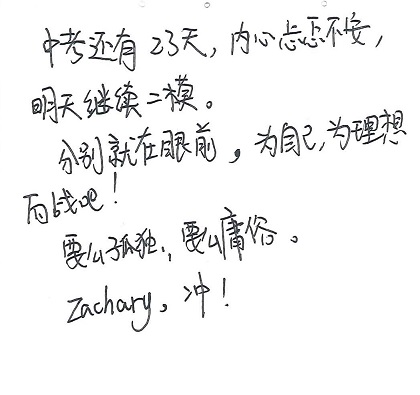 中考还有23天，内心忐忑不安，
明天继续二模。
分别就在眼前，为自己，为理想
而战吧！
要么孤独，要么庸俗。
Zachary，冲！